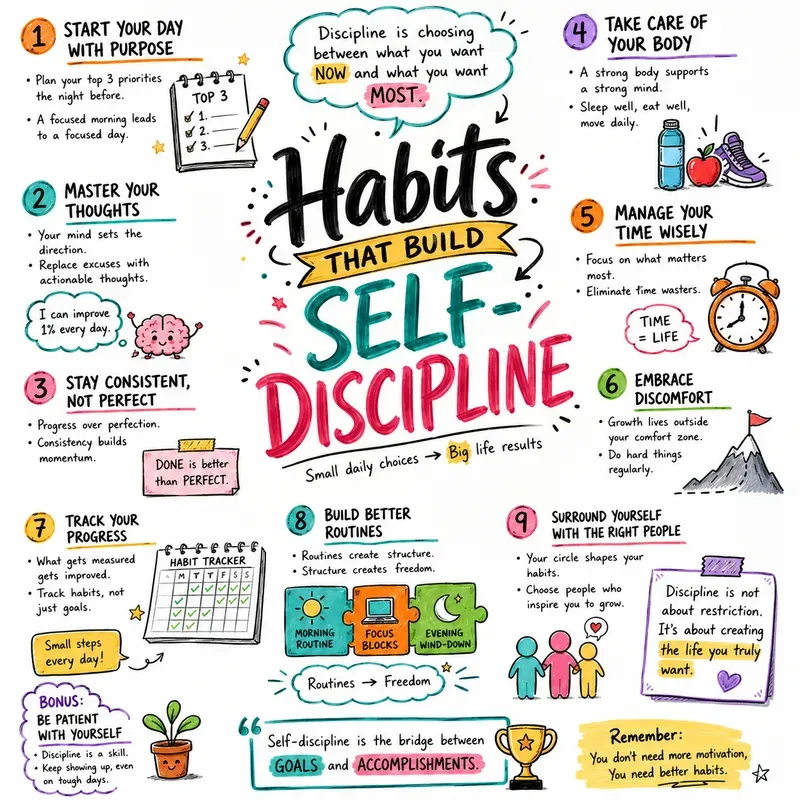 Discipline is choosing
between what you want
NOW and what you want
MOST.
Habits
THAT BUILD
SELF-
DISCIPLINE
Small daily choices → Big life results
1
START YOUR DAY
WITH PURPOSE
• Plan your top 3 priorities
the night before.
• A focused morning leads
to a focused day.
TOP 3
1.
2.
3.
2
MASTER YOUR
THOUGHTS
• Your mind sets the
direction.
• Replace excuses with
actionable thoughts.
I can improve
1% every day.
3
STAY CONSISTENT,
NOT PERFECT
• Progress over perfection.
• Consistency builds
momentum.
DONE is better
than PERFECT.
4
TAKE CARE OF
YOUR BODY
• A strong body supports
a strong mind.
• Sleep well, eat well,
move daily.
5
MANAGE YOUR
TIME WISELY
• Focus on what matters
most.
• Eliminate time wasters.
TIME
= LIFE
6
EMBRACE
DISCOMFORT
• Growth lives outside
your comfort zone.
• Do hard things
regularly.
7
TRACK YOUR
PROGRESS
• What gets measured
gets improved.
• Track habits, not
just goals.
HABIT TRACKER
M T T F S S
Small steps
every day!
8
BUILD BETTER
ROUTINES
• Routines create structure.
• Structure creates freedom.
MORNING
ROUTINE
FOCUS
BLOCKS
EVENING
WIND-DOWN
Routines → Freedom
9
SURROUND YOURSELF
WITH THE RIGHT PEOPLE
• Your circle shapes your
habits.
• Choose people who
inspire you to grow.
Discipline is not
about restriction.
It's about creating
the life you truly
want.
BONUS:
BE PATIENT
WITH YOURSELF
• Discipline is a skill.
• Keep showing up, even
on tough days.
Self-discipline is the bridge between
GOALS and ACCOMPLISHMENTS.
Remember:
You don't need more motivation,
You need better habits.